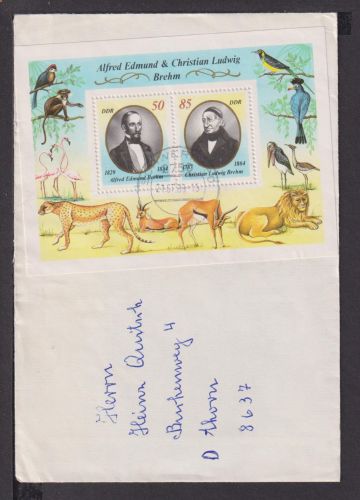 Alfred Edmund & Christian Ludwig
Brehm
DDR 50
85 DDR
1829 1884
Alfred Edmund Brehm
1787 1864
Christian Ludwig Brehm
Herrn
Heinz
4
D Ahorn
8637